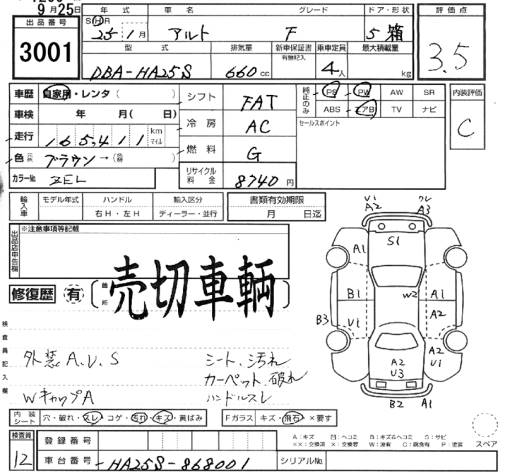 9月25日
出品番号
3001
年式 車名 グレード ドア・形状
25年1月 アルト F 5 箱
型式 排気量 新車保証書 乗車定員 最大積載量
有無記入
DBA-HA25S 660cc 4人 kg
評価点
3.5
車歴 自家用・レンタ( )
車検 年 月( 日)
走行 165,411 km マイル
色 ブラウン→( )
カラー№ ZEL
シフト FAT
冷房 AC
燃料 G
リサイクル料金 8740円
純正のみ PS PW AW SR
ABS エアB TV ナビ
セールスポイント
内装評価
C
輸入車 モデル年式 ハンドル 輸入区分 書類有効期限
右H・左H ディーラー・並行 月 日迄
出品店申告欄 ※注意事項等記載
修復歴 有 箇所( )
売切車両
検査員記入欄
外装 A.U.S シート.汚れ
カーペット.破れ
WキャップA ハンドルスレ
V1 A2 ワレ A3
S1
A1
B1 W2 A1
B3 U1 A2
A2 U1
A2 U3
B2 A1
内装シート 穴・破れ・スレ・コゲ・汚れ・キズ・黄ばみ Fガラス キズ・飛石・×要す
検査員 12
登録番号
車台番号 HA25S-868001 シリアルNo.
スペア